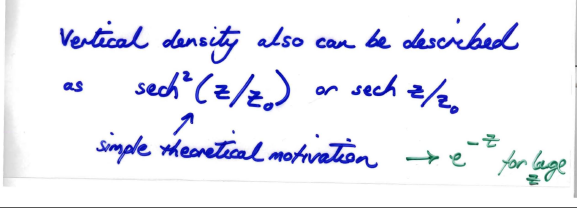 Vertical density also can be described
as sech²(z/z₀) or sech z/z₀
simple theoretical motivation → e^-z for large z